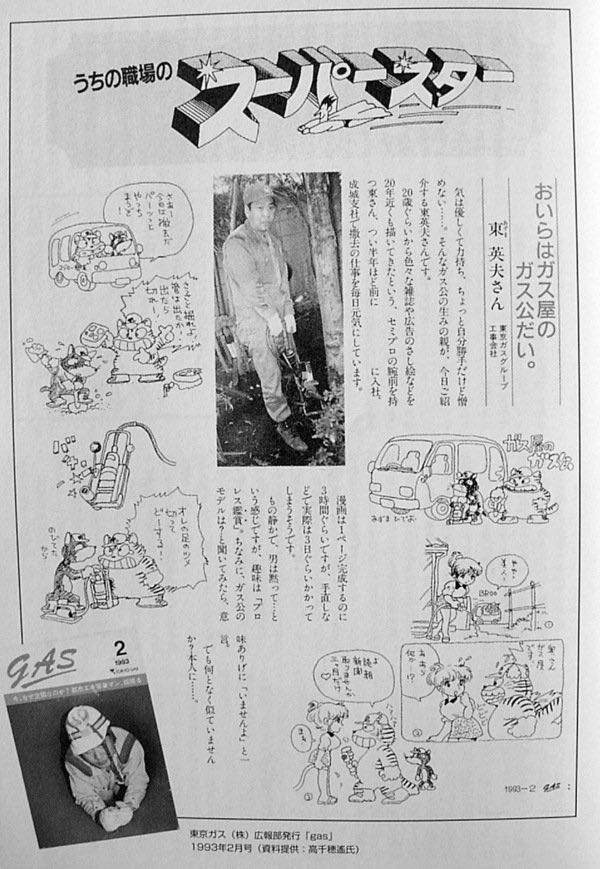 うちの職場の
スーパースター
おいらはガス屋の
ガス公だい。
東京ガスグループ
工事会社
あずま
東 英夫さん
気は優しくて力持ち、ちょっと自分勝手だけど憎
めない……。そんなガス公の生みの親が、今日ご紹
介する東英夫さんです。
20歳ぐらいから色々な雑誌や広告のさし絵などを
20年近くも描いてきたという、セミプロの腕前を持
つ東さん、つい半年ほど前に
に入社、
成城支社で撤去の仕事を毎日元気にしています。
漫画は1ページ完成するのに
3時間ぐらいですが、手直しな
どで実際は3日ぐらいかかって
しまうそうです。
もの静かで、男は黙って…と
いう感じですが、趣味は「プロ
レス鑑賞」。ちなみに、ガス公の
モデルは?と聞いてみたら、意
味ありげに「いませんよ」と一
言。
でも何となく似ていません
か?本人に……。
さあー
今日は撤去だ
パーッと
やっち
まうど
!
さんと掘れよ
管は出たか!
出たら
切れー!
オレの足のツメ
切って
どーする!
のびてた
から
ガス屋の
ガス公
あずま ひでお
やや
美人!
BROO
①
奥さん
ガス屋
です
まあ
何か!?
②
よ
読新
新聞
取りませんか
三ヶ月だけ
まあ
③
1993-2 gas
GAS
2
1993
東京ガス(株)広報部発行「gas」
1993年2月号(資料提供:高千穂遙氏)